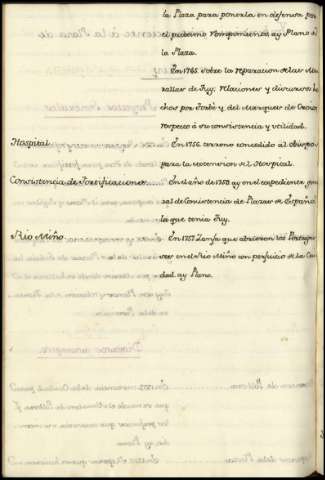 la Plaza para ponerla en defensa por
el proximo Rompimiento, ay Plano de
la Plaza.
En 1765. sobre la reparacion de las Mu-
rallas de Tuy; relaciones y discursos he-
chos por y del Marques de
respecto á su consistencia y utilidad.
Hospital
En 1756. terreno concedido al Obispo
para la extension del Hospital.
Consistencia de Fortificaciones
En el año de 1750 ay en el expediente gene-
ral de Consistencia de Plazas de España
la que tenia Tuy.
Rio Miño
En 1757. Zanja que abrieron los Portugue-
ses en el Rio Miño con perjuicio de la Ciu-
dad, ay Plano.